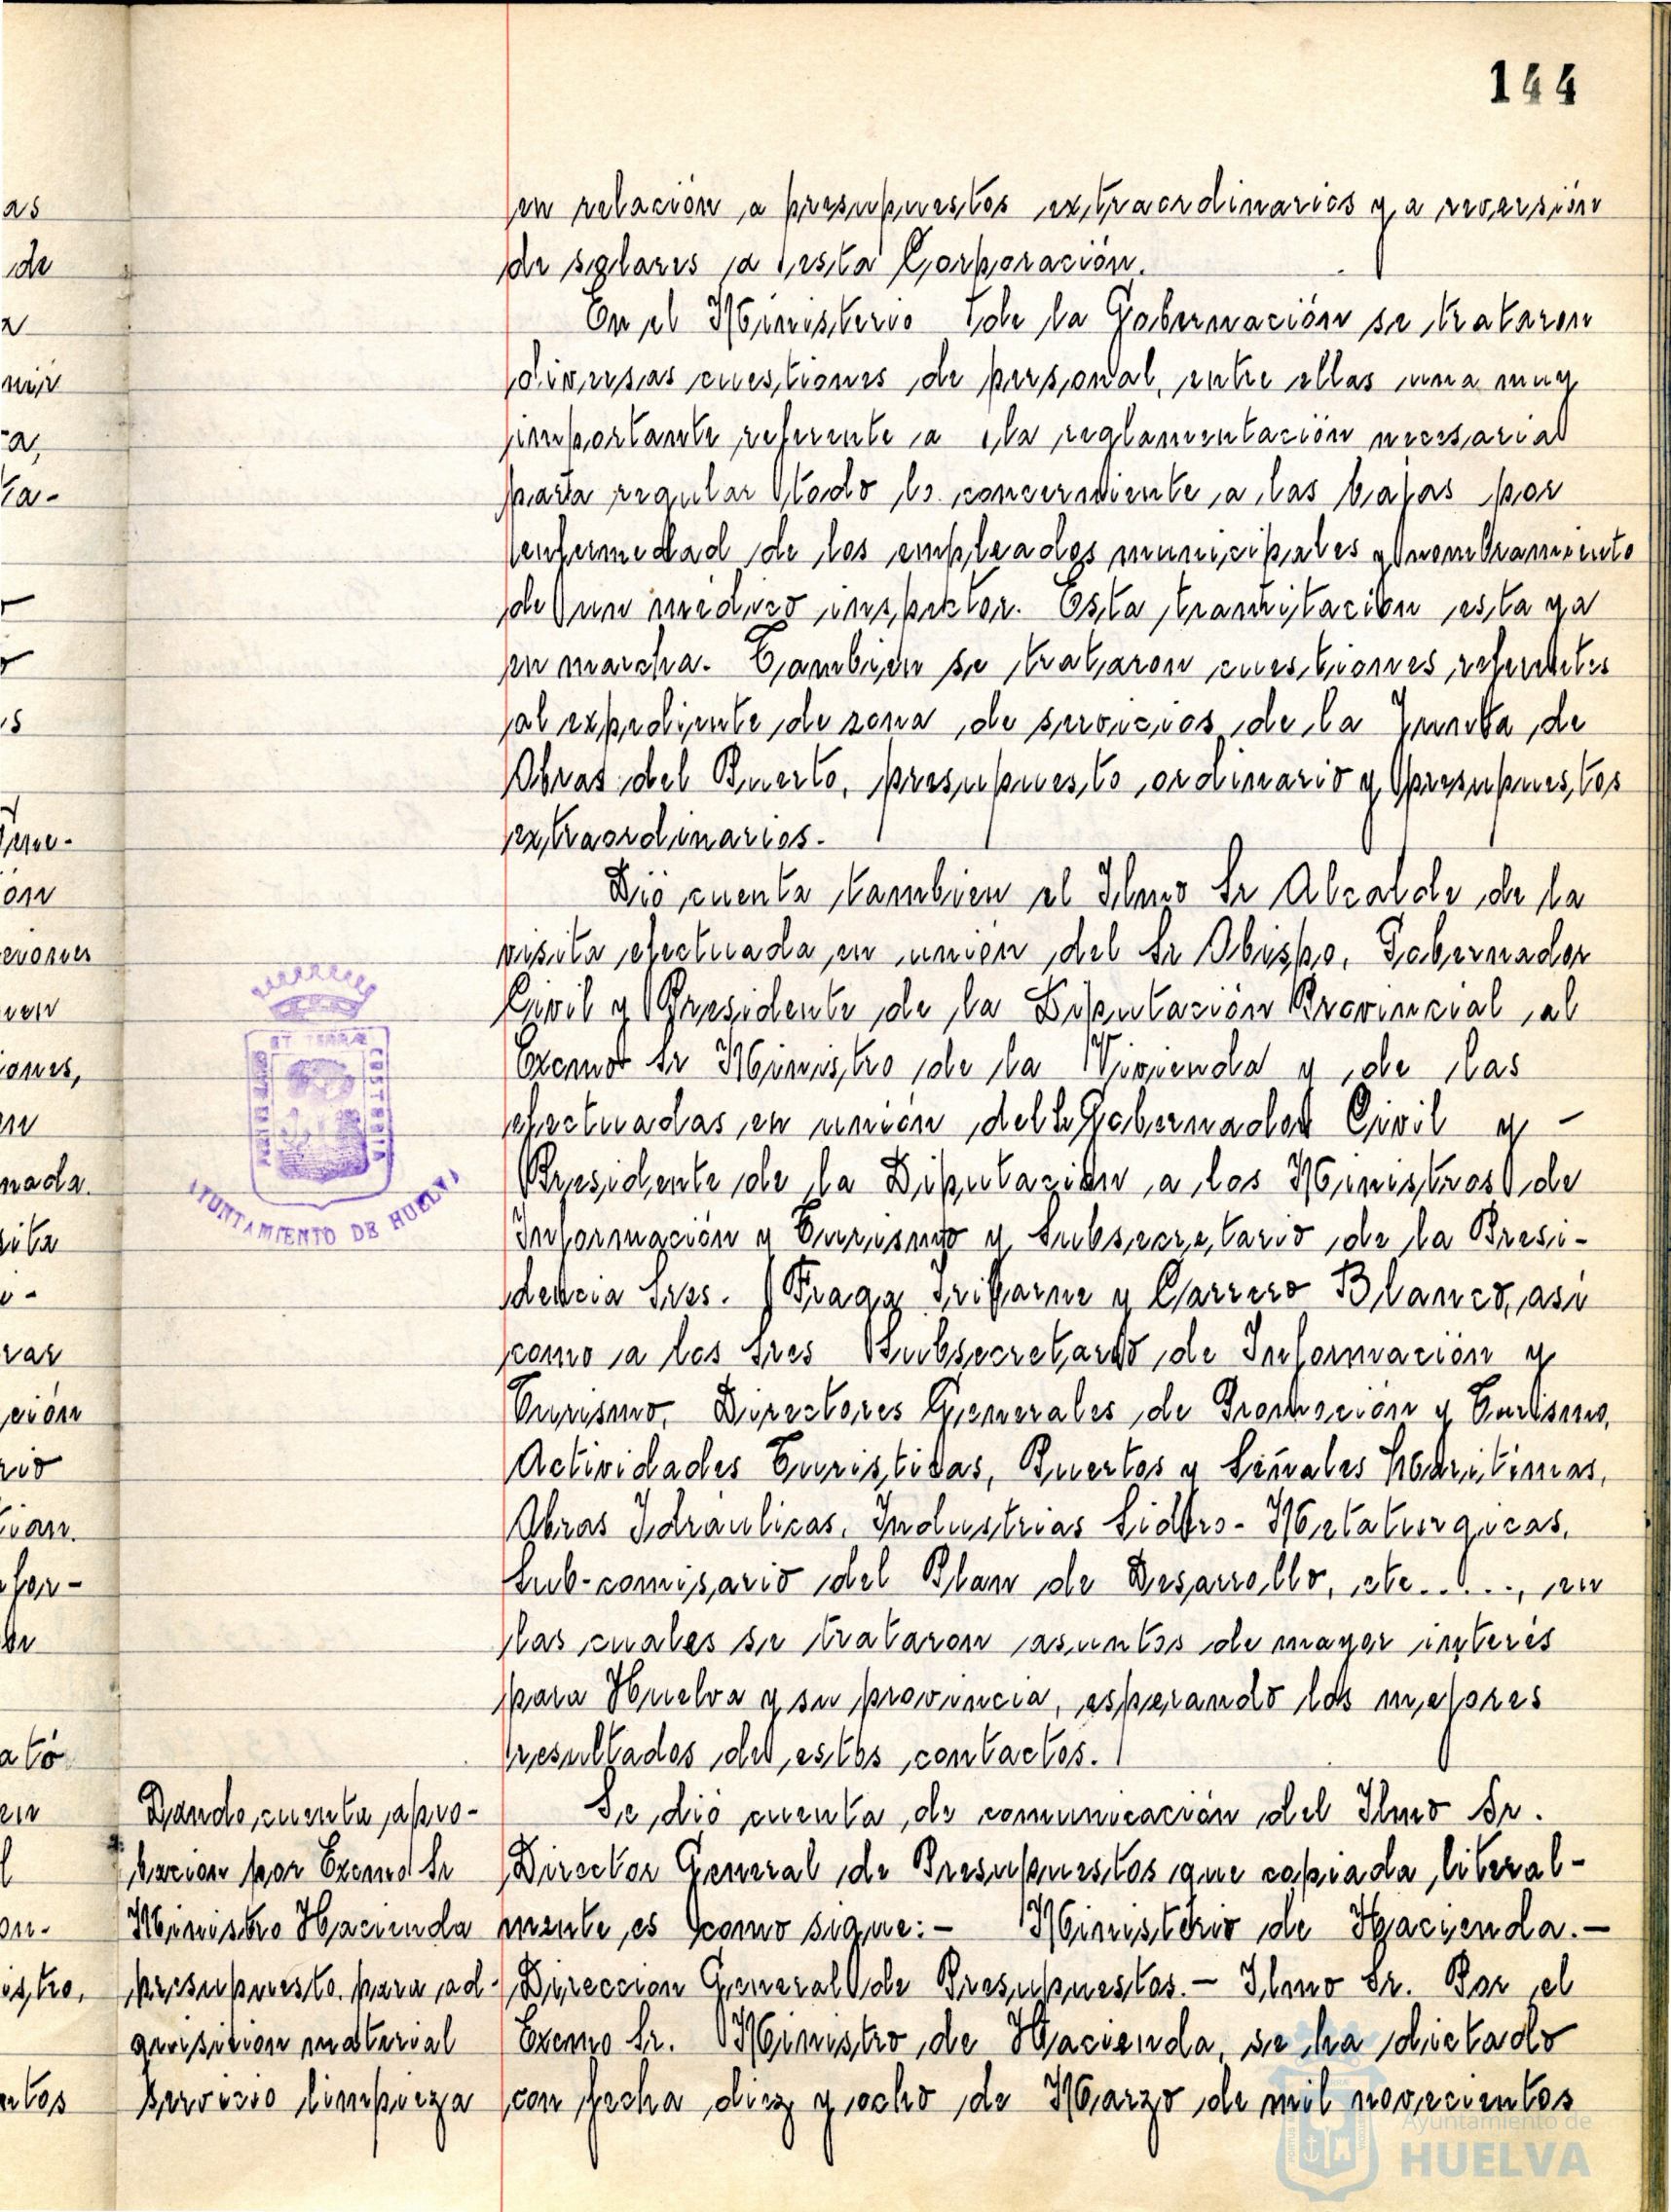 144
as
de
a
mir
ra,
ta-
s
ion
iones,
nada.
sita
rar
ción
rio
for-
ató
l
on-
istro,
entos
en relación a presupuestos extraordinarios y a reversión
de solares a esta Corporación.
En el Ministerio de la Gobernación se trataron
diversas cuestiones de personal, entre ellas una muy
importante referente a la reglamentación necesaria
para regular todo lo concerniente a las bajas por
enfermedad de los empleados municipales y nombramiento
de un médico inspector. Esta tramitación esta ya
en marcha. Tambien se trataron cuestiones referentes
al expediente de zona de servicios de la Junta de
Obras del Puerto, presupuesto ordinario y presupuestos
extraordinarios.
Dió cuenta tambien el Ilmo Sr Alcalde de la
visita efectuada en unión del Sr Obispo, Gobernador
Civil y Presidente de la Diputación Provincial al
Excmo Sr Ministro de la Vivienda y de las
efectuadas en unión del Gobernador Civil y -
Presidente de la Diputación a los Ministros de
Información y Turismo y Subsecretario de la Presi-
dencia Sres. Fraga Iribarne y Carrero Blanco, asi
como a los Sres Subsecretario de Información y
Turismo, Directores Generales de Promoción y Turismo,
Actividades Turisticas, Puertos y Señales Maritimas,
Obras Idraulicas, Industrias Sidero-Metalurgicas,
Sub-comisario del Plan de Desarrollo, etc....., en
las cuales se trataron asuntos de mayor interés
para Huelva y su provincia, esperando los mejores
resultados de estos contactos.
Se dió cuenta de comunicación del Ilmo Sr.
Director General de Presupuestos que copiada literal-
mente es como sigue:- Ministerio de Hacienda.-
Direccion General de Presupuestos.- Ilmo Sr. Por el
Excmo Sr. Ministro de Hacienda, se ha dictado
con fecha diez y ocho de Marzo de mil novecientos
Dando cuenta apro-
bacion por Excmo Sr
Ministro Hacienda
presupuesto para ad-
quisicion material
Servicio limpieza
AYUNTAMIENTO DE HUELVA
Ayuntamiento de
HUELVA